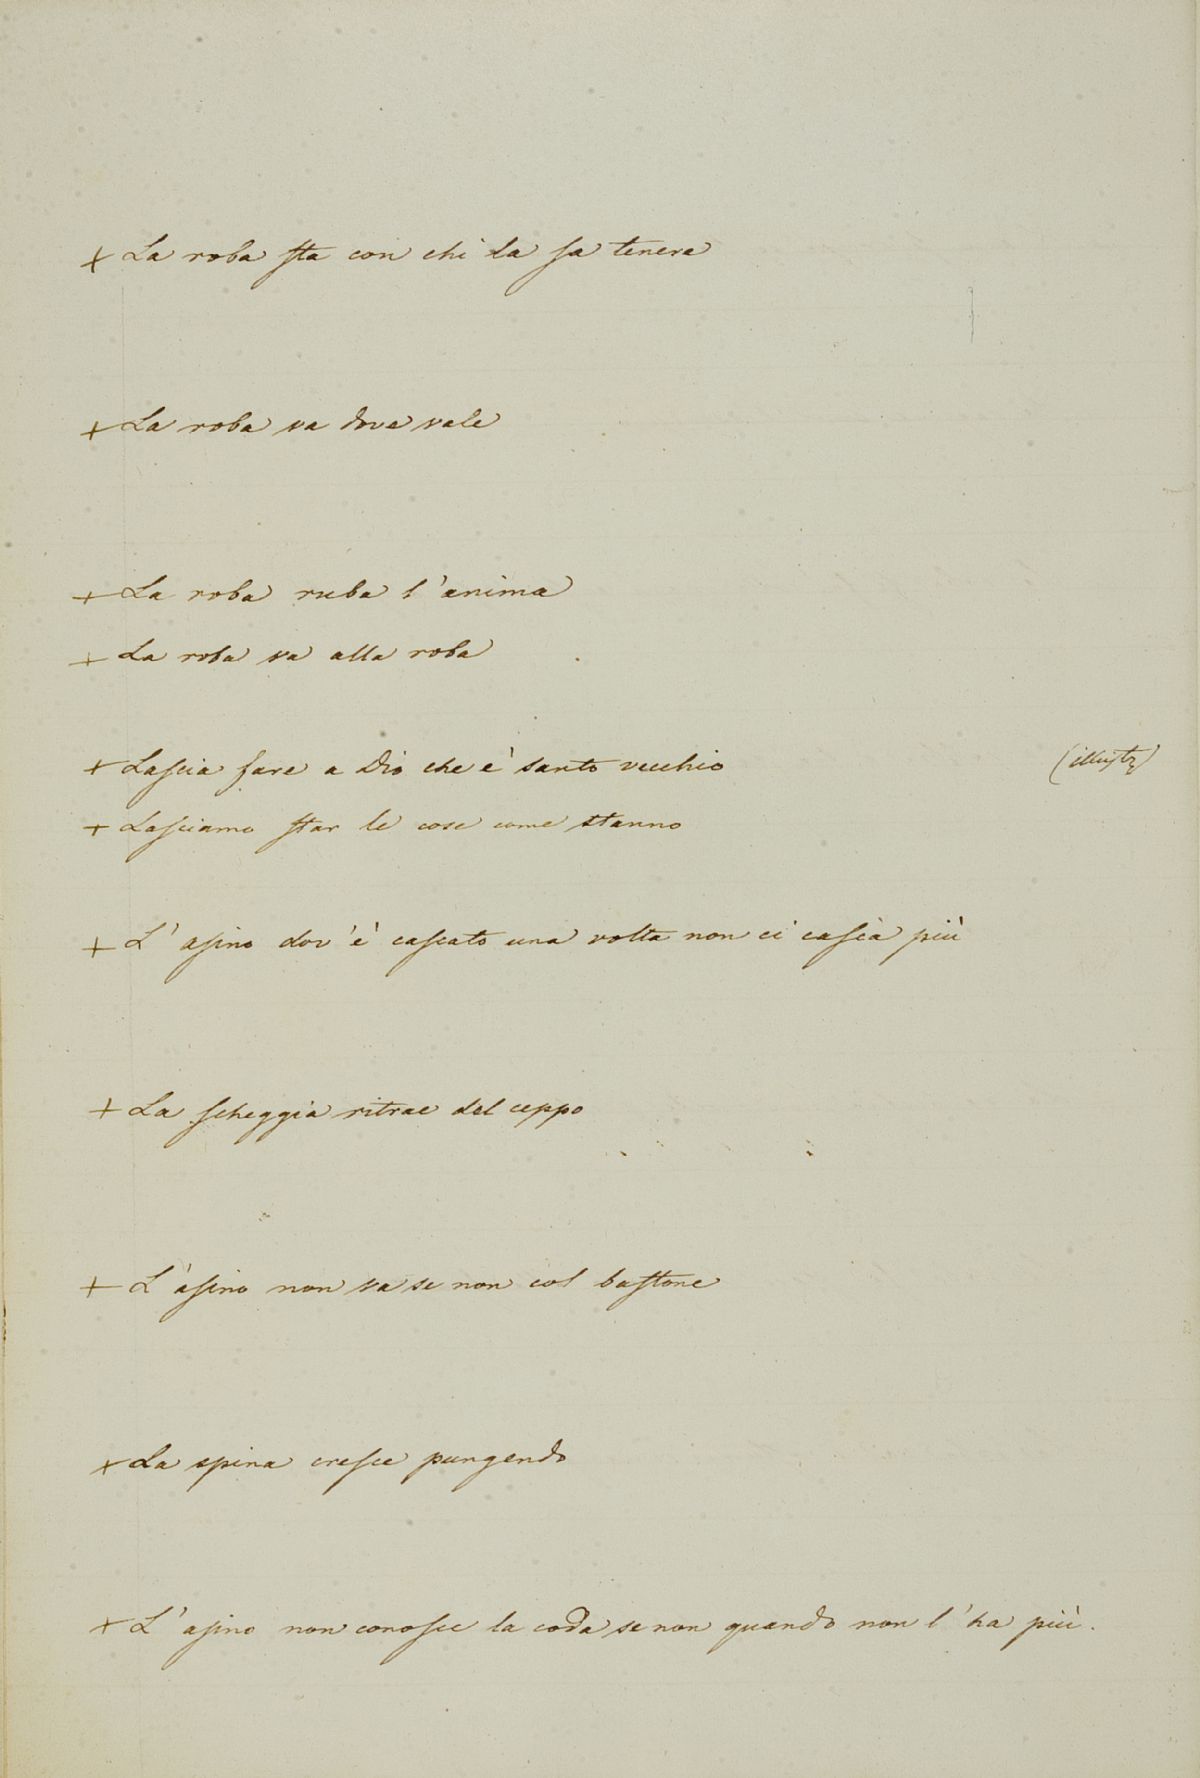 + La roba sta con chi la sa tenere
+ La roba va dove vale
+ La roba ruba l'anima
+ La roba va alla roba
+ Lascia fare a Dio che è santo vecchio
+ Lasciamo star le cose come stanno
+ L'asino dov'è cascato una volta non ci casca più
+ La scheggia ritrae del ceppo
+ L'asino non va se non col bastone
+ La spina cresce pungendo
+ L'asino non conosce la coda se non quando non l'ha più.